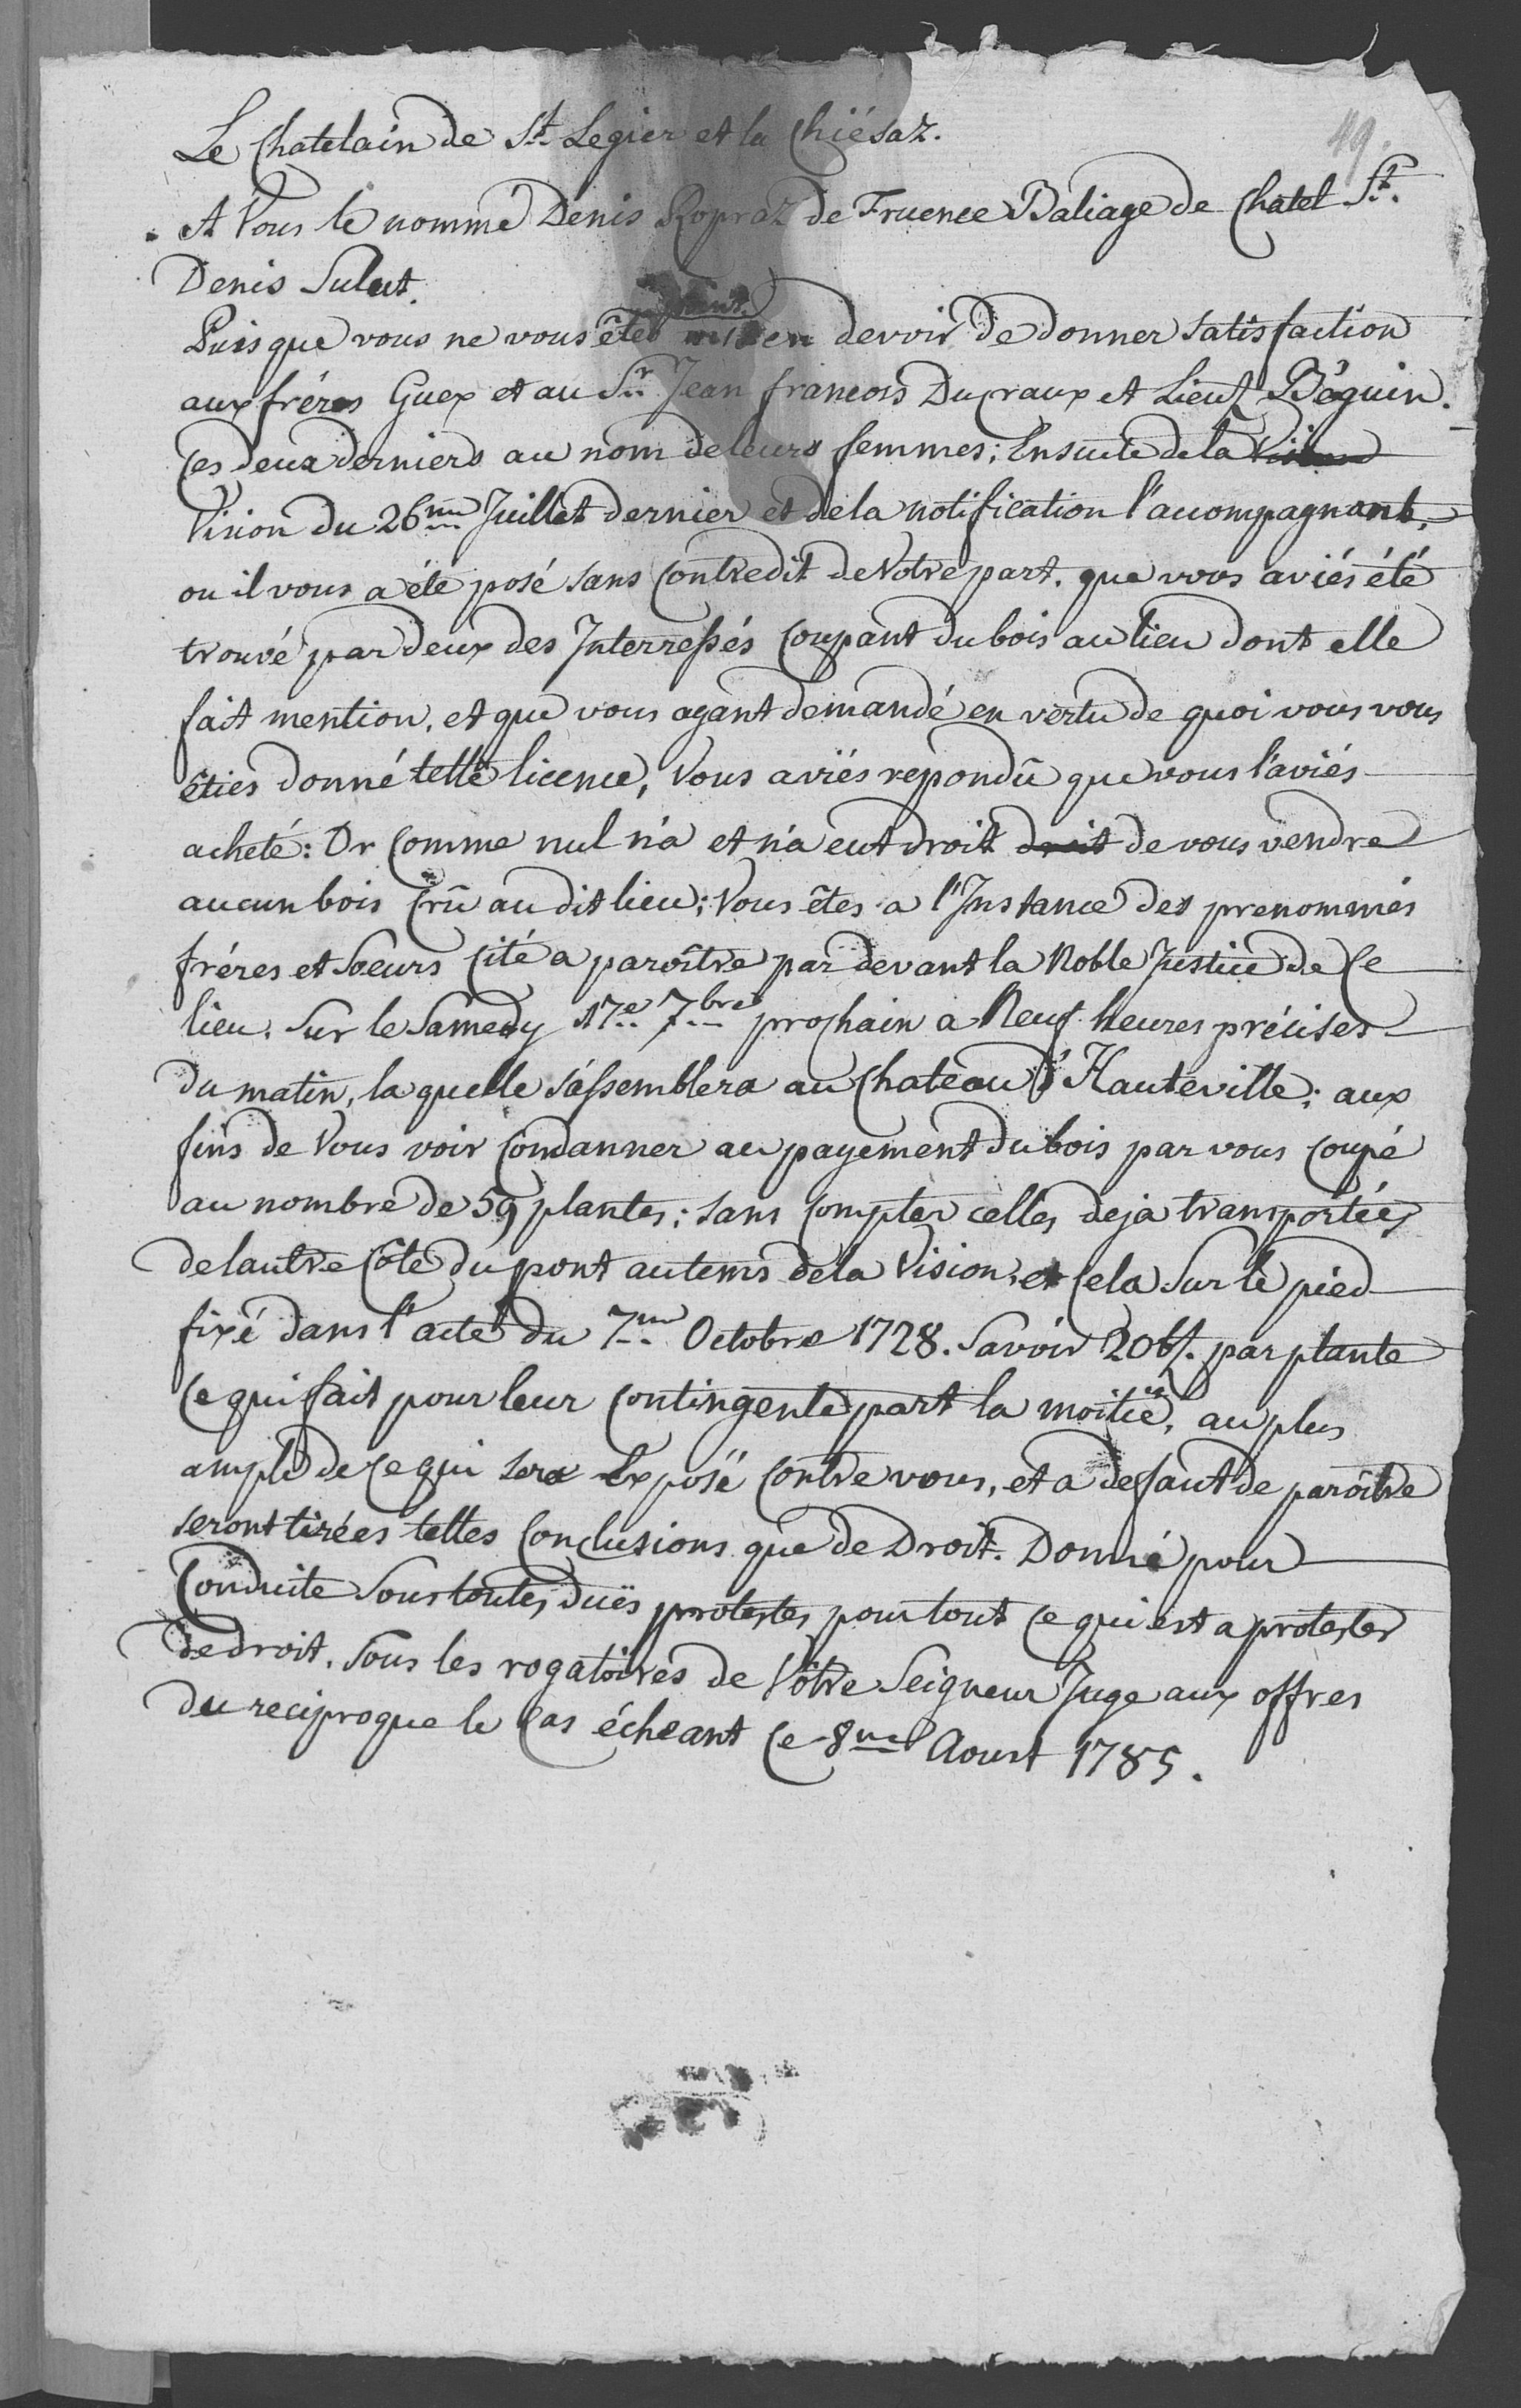 49.
Le Chatelain de St. Legier et la Chiésaz.
A Vous le nommé Denis Ropraz de Fruence Baliage de Chatel St.
Denis Salut.
Puis que vous ne vous êtes point mis en devoir de donner satisfaction
aux fréres Guex et au Sr. Jean francois Ducraux et Lieut Béguin.
Ces deux derniers au nom de leurs femmes; Ensuite de la Vision
Vision du 26me Juillet dernier et de la notification l'accompagnant,
ou il vous a été posé sans Contredit de Votre part, que vous aviés été
trouvé par deux des Interressés Coupant du bois au lieu dont elle
fait mention, et que vous ayant demandé en vertu de quoi vous vous
êties donné telle licence, Vous aviés repondû que vous l'aviés
acheté: Or Comme nul n'a et n'a eut droit droit de vous vendre
aucun bois Crû au dit lieu; Vous êtes a l'Instance des prenommés
fréres et Soeurs Cité a paroître par devant la Noble Justice de Ce
lieu, Sur le Samedy 17e 7bre prochain a Neuf heures précises
du matin, la quelle s'assemblera au Chateau d'Hauteville; aux
fins de Vous voir Condanner au payement du bois par vous Coupé
au nombre de 59 plantes; sans Compter celles deja transportées
de lautre Côté du pont au tems de la Vision, et Cela Sur le pied
fixé dans l'acte du 7me Octobre 1728. Savoir 20 bz. par plante
Ce qui fait pour leur Contingente part la moitié, au plus
ample de Ce qui sera Exposé Contre vous, et a defaut de paroitre
seront tirées telles Conclusions que de Droit. Donné pour
Conduite Sous toutes duës protestes pour tout Ce qui est a protester
de droit, Sous les rogatoires de Vôtre Seigneur Juge aux offres
du reciproque le Cas écheant Ce 8me Aoust 1785.